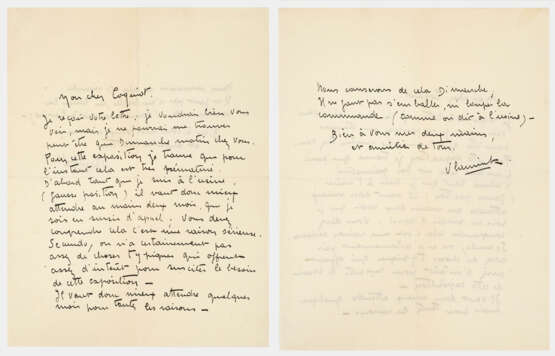 Mon cher Coquiot.
Je reçois votre lettre, je voudrais bien vous
voir, mais je ne pourrai me trouver
peut être que Dimanche matin chez vous.
Pour cette exposition, je trouve que pour
l'instant cela est très prématuré.
D'abord tant que je suis à l'usine.
(fausse position) il vaut donc mieux
attendre au moins deux mois, que je
sois en sursis d'appel. Vous devez
comprendre cela c'est une raison sérieuse.
Secundo, on n'a certainement pas
assez de choses typiques qui offrent
assez d'intérêt pour susciter le besoin
de cette exposition —
Il vaut donc mieux attendre quelques
mois pour toutes les raisons —
Nous causerons de cela Dimanche,
Il ne faut pas s'emballer, ni louper la
commande. (comme on dit à l'usine) —
Bien à vous mes deux mains,
et amitiés de tous.
Vlaminck